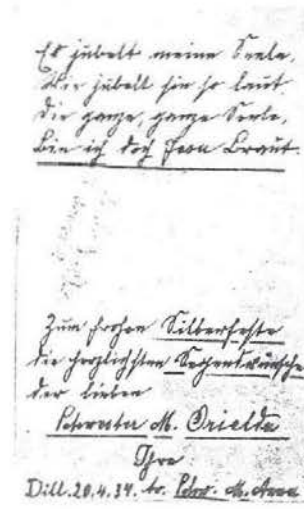 Es jubelt meine Seele,
Wie jubelt sie so laut.
Die ganze, ganze Seele,
Bin ich doch Braut.
Zum frohen Silberfeste
die herzlichsten Segenswünsche
der lieben
M. Orielda
Ihre
Dill. 20.4.34. Schw. M. Anna